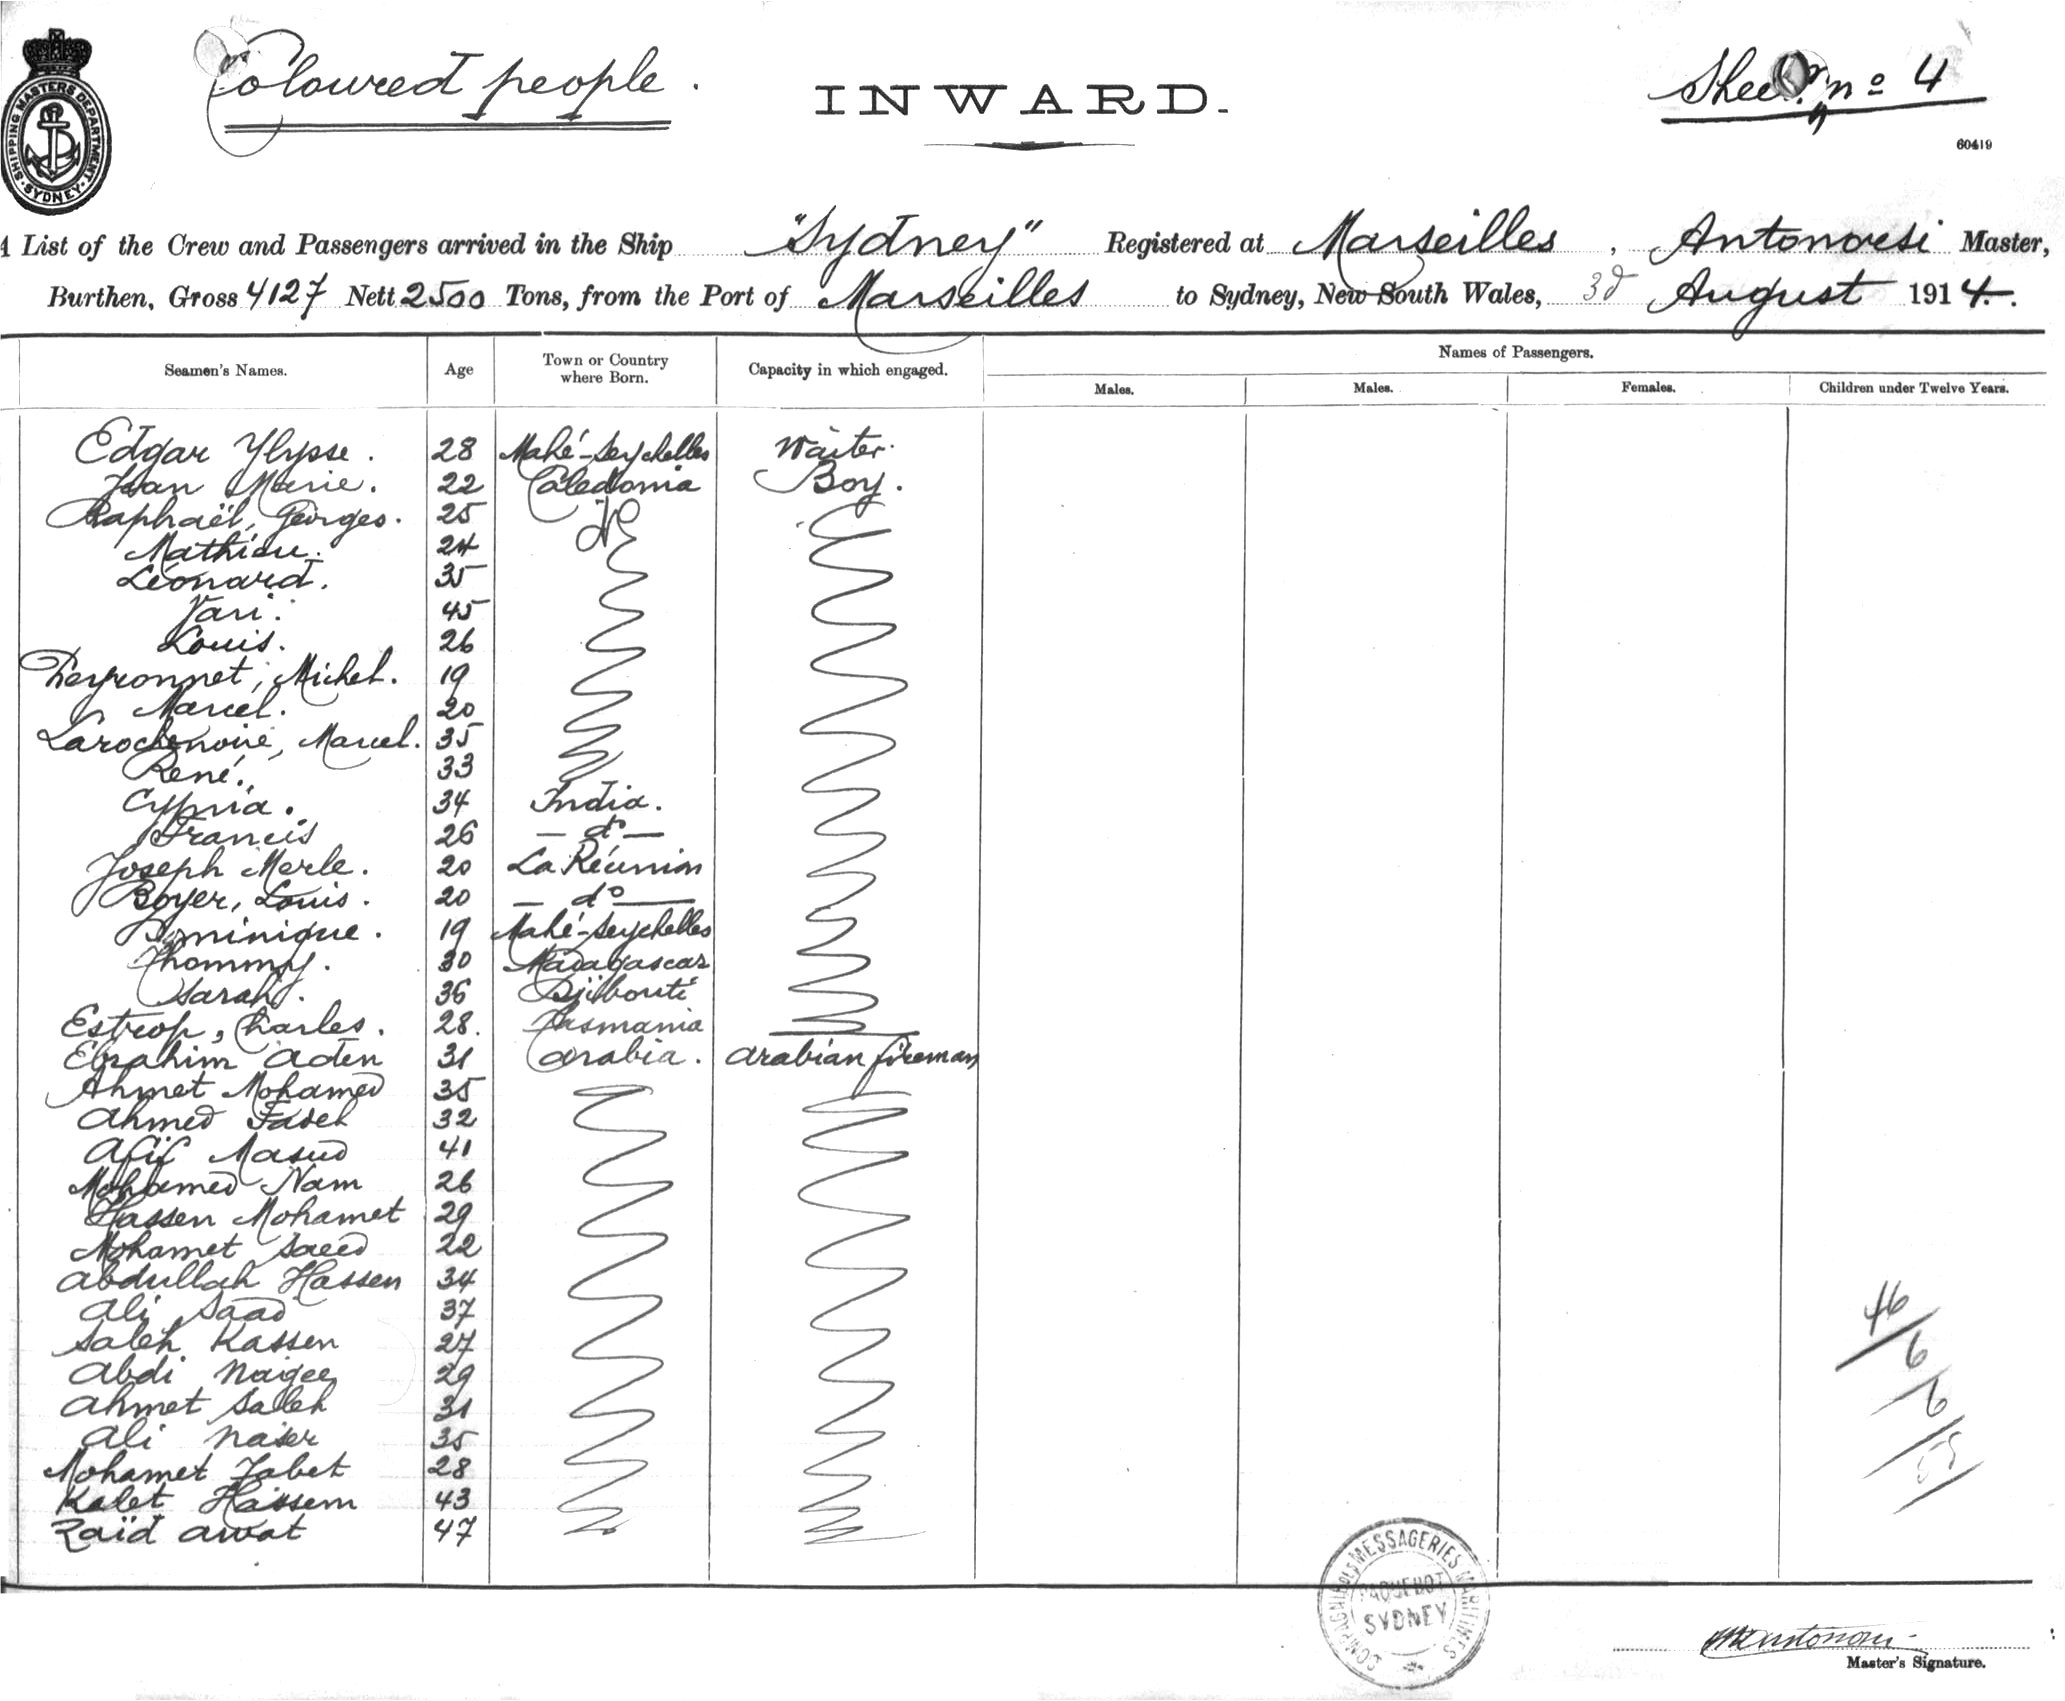 Coloured people.
INWARD.
Sheet nº 4
60419
SHIPPING MASTERS DEPARTMENT SYDNEY
List of the Crew and Passengers arrived in the Ship "Sydney" Registered at Marseilles, Antonovesi Master,
Burthen, Gross 4127 Nett 2500 Tons, from the Port of Marseilles to Sydney, New South Wales, 3d August 1914.
Seamen's Names. Age Town or Country where Born. Capacity in which engaged. Names of Passengers.
Males. Males. Females. Children under Twelve Years.
Edgar Ylysse. 28 Mahé-Seychelles Waiter.
Jean Marie. 22 Caledonia Boy.
Raphaël, Georges. 25 do
Mathieu. 24
Léonard. 35
Vari. 45
Louis. 26
Peyronnet, Michel. 19
Marcel. 20
Larochenoire, Marcel. 35
René. 33
Cypria. 34 India.
Francis 26 — do —
Joseph Merle. 20 La Réunion
Boyer, Louis. 20 — do —
Dominique. 19 Mahé-Seychelles
Thommy. 30 Madagascar
Sarah. 36 Djibouti
Estrop, Charles. 28. Tasmania
Ebrahim Aden 31 Arabia. Arabian fireman
Ahmet Mohamed 35
Ahmed Fadel 32
Afif Masud 41
Mohamed Nam 26
Hassen Mohamet 29
Mohamet Saeed 22
Abdullah Hassen 34
Ali Saad 37
Saleh Kassen 27
Abdi Naigee 29
Ahmet Saleh 31
Ali Naser 35
Mohamet Tabet 28
Kalet Hassem 43
Zaïd Awat 47
46
6
6
COMPAGNIE DES MESSAGERIES MARITIMES
PAQUEBOT
SYDNEY
Master's Signature.